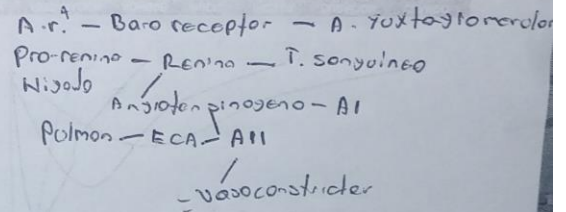 A.r.4 - Baro receptor - A. yuxtaglomerular
Pro-renina - Renina - T. sanguineo
Higado
Angiotenpinogeno - AI
Pulmon - ECA - AII
- vasoconstricter